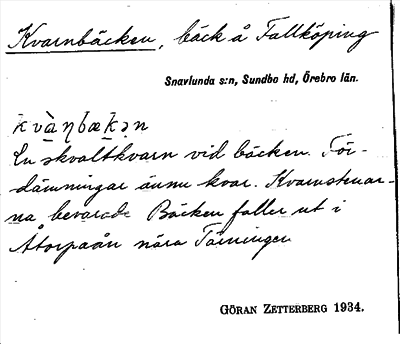 Kvarnbäcken, bäck å Fallköping
Snavlunda s:n, Sundbo hd, Örebro län.
kvàŋbækən
En skvaltkvarn vid bäcken. För-
dämningar ännu kvar. Kvarnstenar-
na bevarade Bäcken faller ut i
Åtorpaån nära Tärningen
GÖRAN ZETTERBERG 1934.